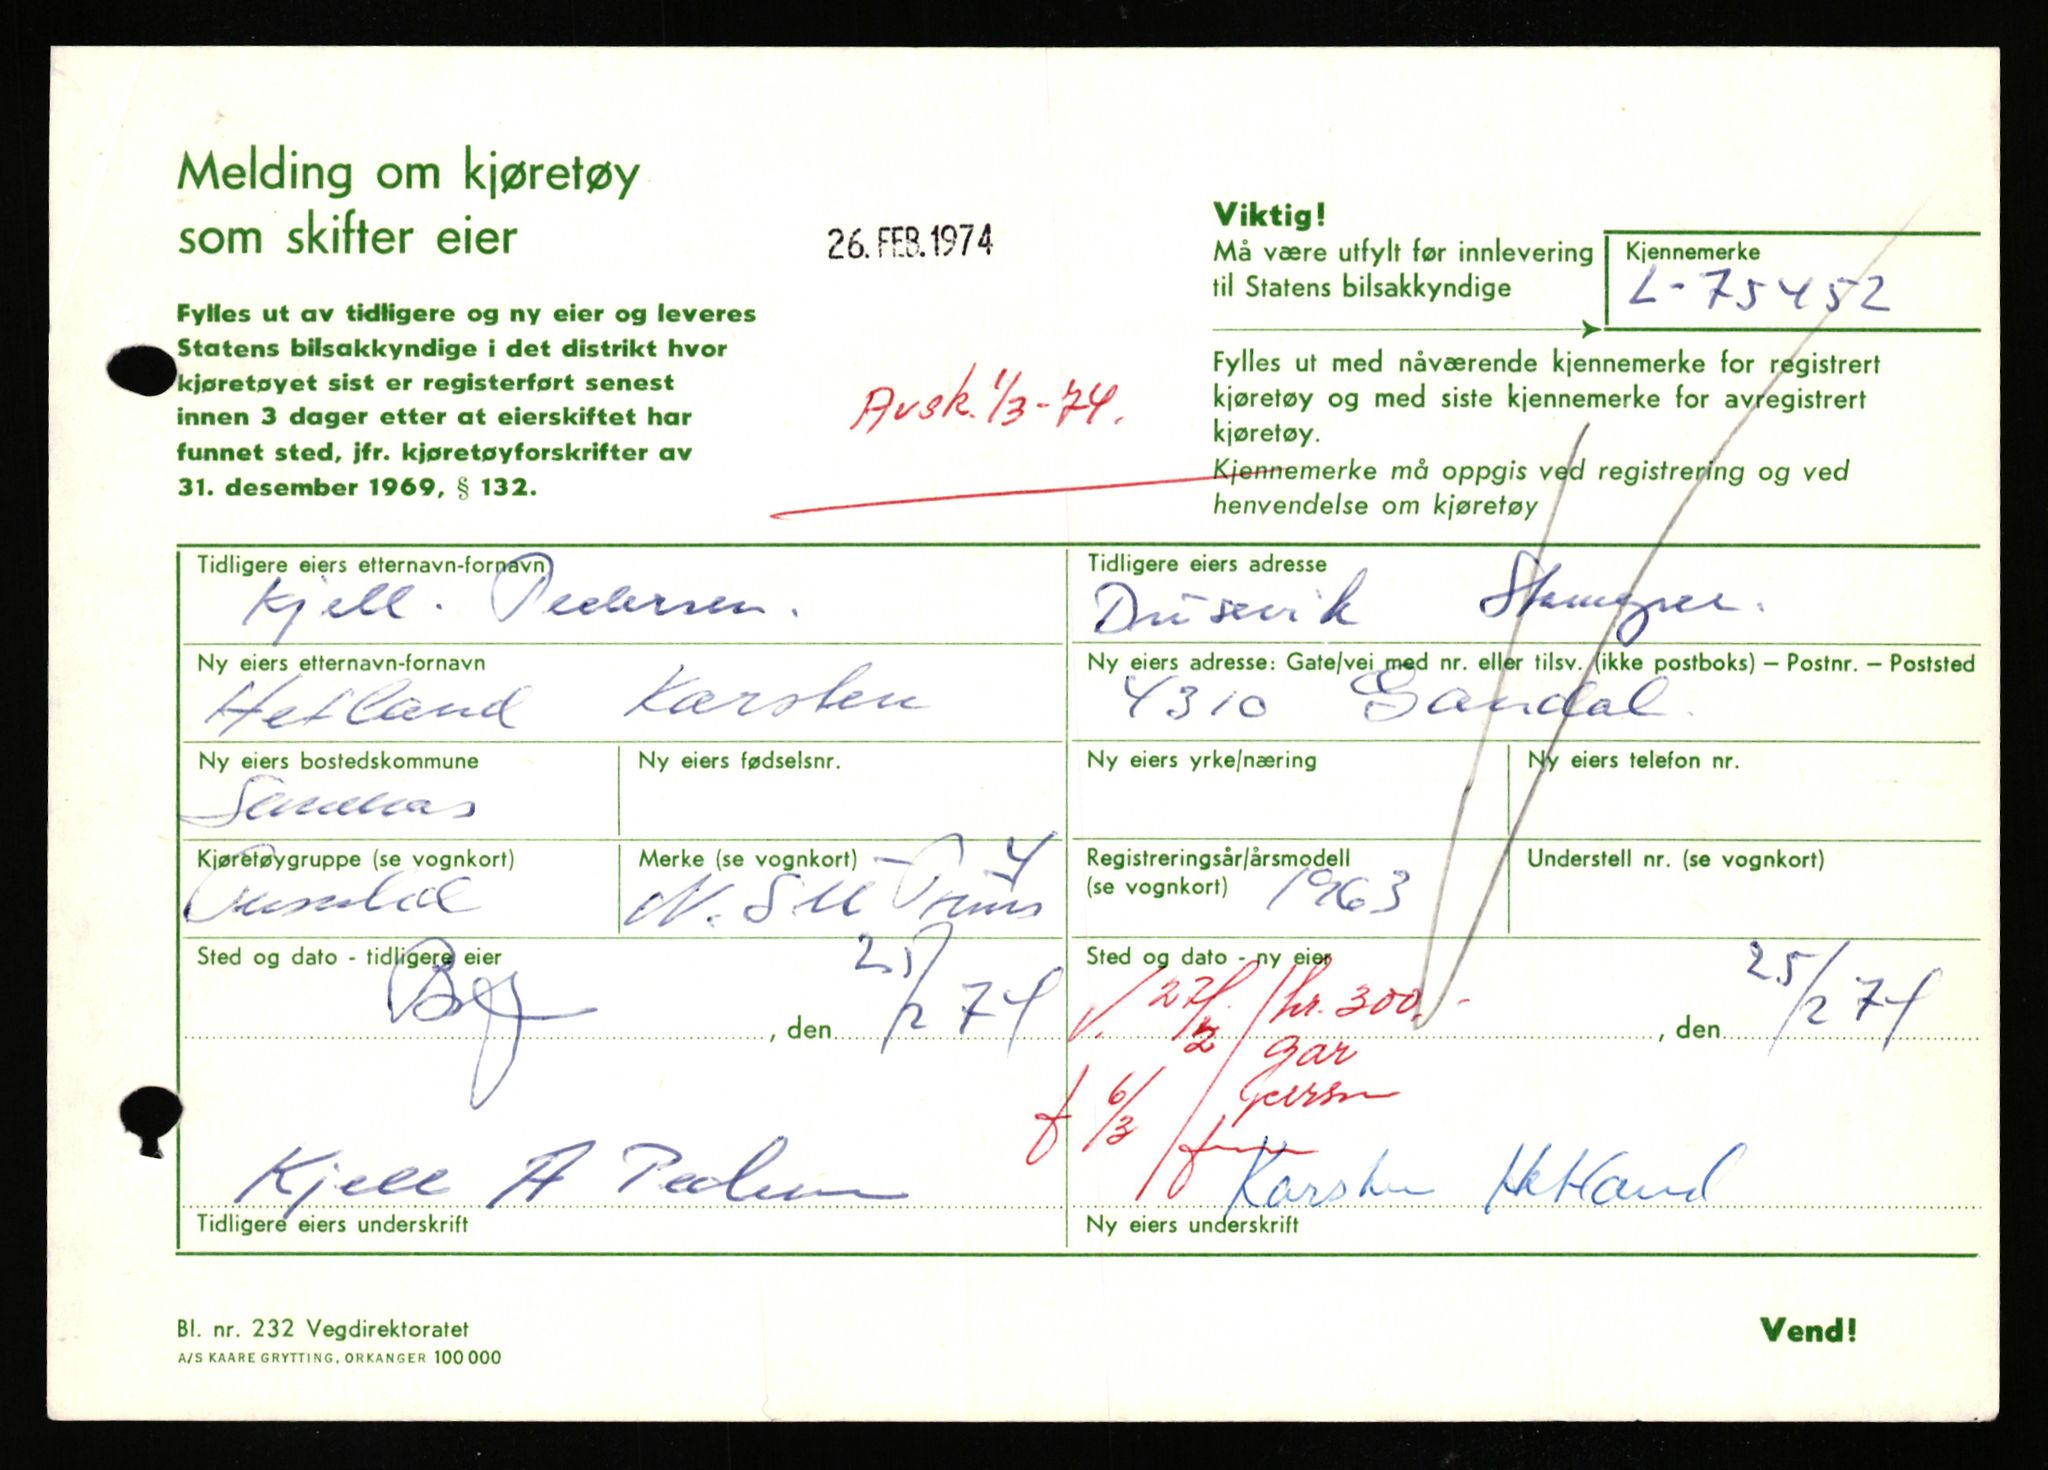 Melding om kjøretøy
som skifter eier
26. FEB. 1974
Fylles ut av tidligere og ny eier og leveres
Statens bilsakkyndige i det distrikt hvor
kjøretøyet sist er registerført senest
innen 3 dager etter at eierskiftet har
funnet sted, jfr. kjøretøyforskrifter av
31. desember 1969, § 132.
Avsk. 1/3-74.
Viktig!
Må være utfylt før innlevering
til Statens bilsakkyndige
Kjennemerke
L-75452
Fylles ut med nåværende kjennemerke for registrert
kjøretøy og med siste kjennemerke for avregistrert
kjøretøy.
Kjennemerke må oppgis ved registrering og ved
henvendelse om kjøretøy
Tidligere eiers etternavn-fornavn
Kjell. Pedersen.
Tidligere eiers adresse
Dusevik
Ny eiers etternavn-fornavn
Hetland Karsten
Ny eiers adresse: Gate/vei med nr. eller tilsv. (ikke postboks) – Postnr. – Poststed
4310 Gandal.
Ny eiers bostedskommune
Sandnes
Ny eiers fødselsnr.
Ny eiers yrke/næring
Ny eiers telefon nr.
Kjøretøygruppe (se vognkort)
Merke (se vognkort)
N.S.U Prins 4
Registreringsår/årsmodell
(se vognkort)
1963
Understell nr. (se vognkort)
Sted og dato - tidligere eier
, den 25/2 74
Sted og dato - ny eier
, den 25/2 74
27/2 / kr. 300.-
6/3
Kjell A Pedersen
Tidligere eiers underskrift
Karsten Hetland
Ny eiers underskrift
Bl. nr. 232 Vegdirektoratet
A/S KAARE GRYTTING, ORKANGER 100 000
Vend!